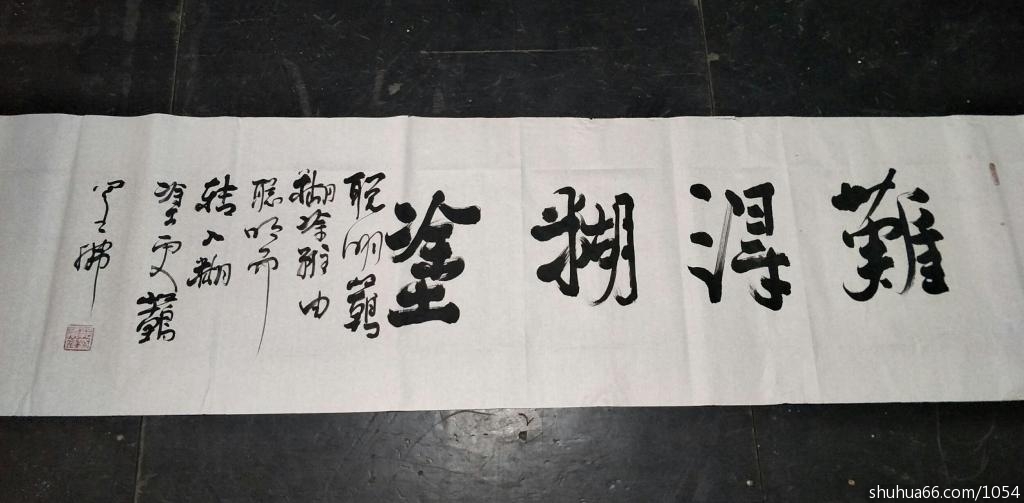 難得糊塗
聪明難
糊涂難由
聪明而
轉入糊
塗更難
shuhua66.com/1054